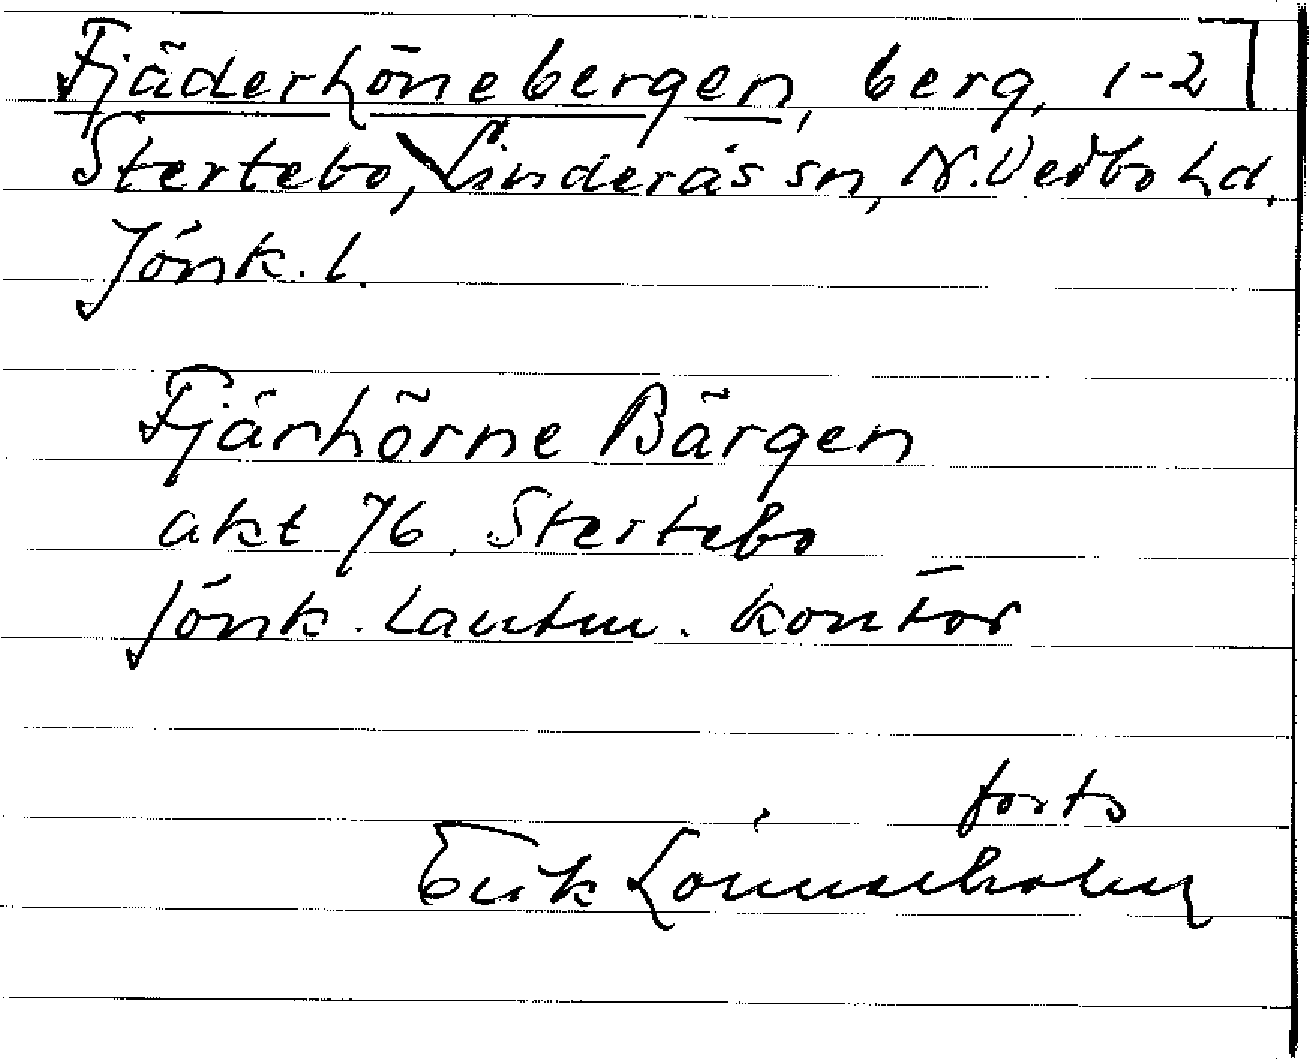 Fjäderhönebergen, berg, 1-2
Stertebo, Linderås sn, N. Vedbo hd,
Jönk. l.
Fjärhörne Bärgen
akt 76. Stertebo
Jönk. Lantm. kontor
forts
Erik